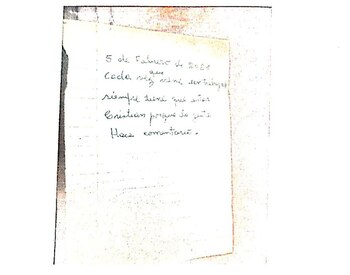 5 de Febrero de
Cada vez que miné en trabajo
siempre tiene que estar
Cristian porque la gente
Hace comentario.